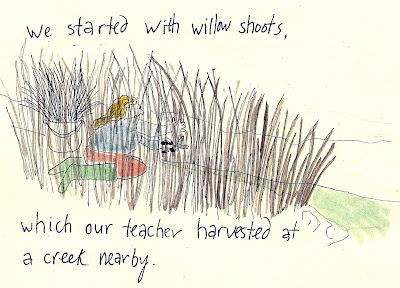 we started with willow shoots,
which our teacher harvested at
a creek nearby.